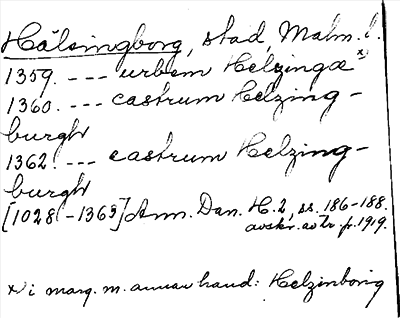 Hälsingborg, stad, Malm. l.
1359. --- urbem Helzingæ x)
1360. --- castrum Helzing-
burgh
1362. --- castrum Helzing-
burgh
[1028-1363] Ann. Dan. H. 2, ss. 186-188.
avskr. av tr. p. 1919.
x) i marg. m. annan hand: Helzinborig